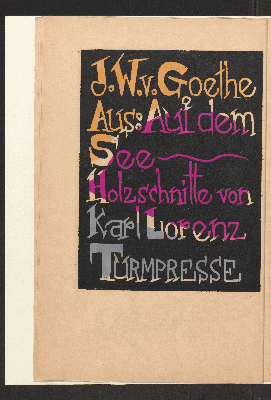 J.W.v.Goethe
Aus: Auf dem
See
Holzschnitte von
Karl Lorenz
TURMPRESSE